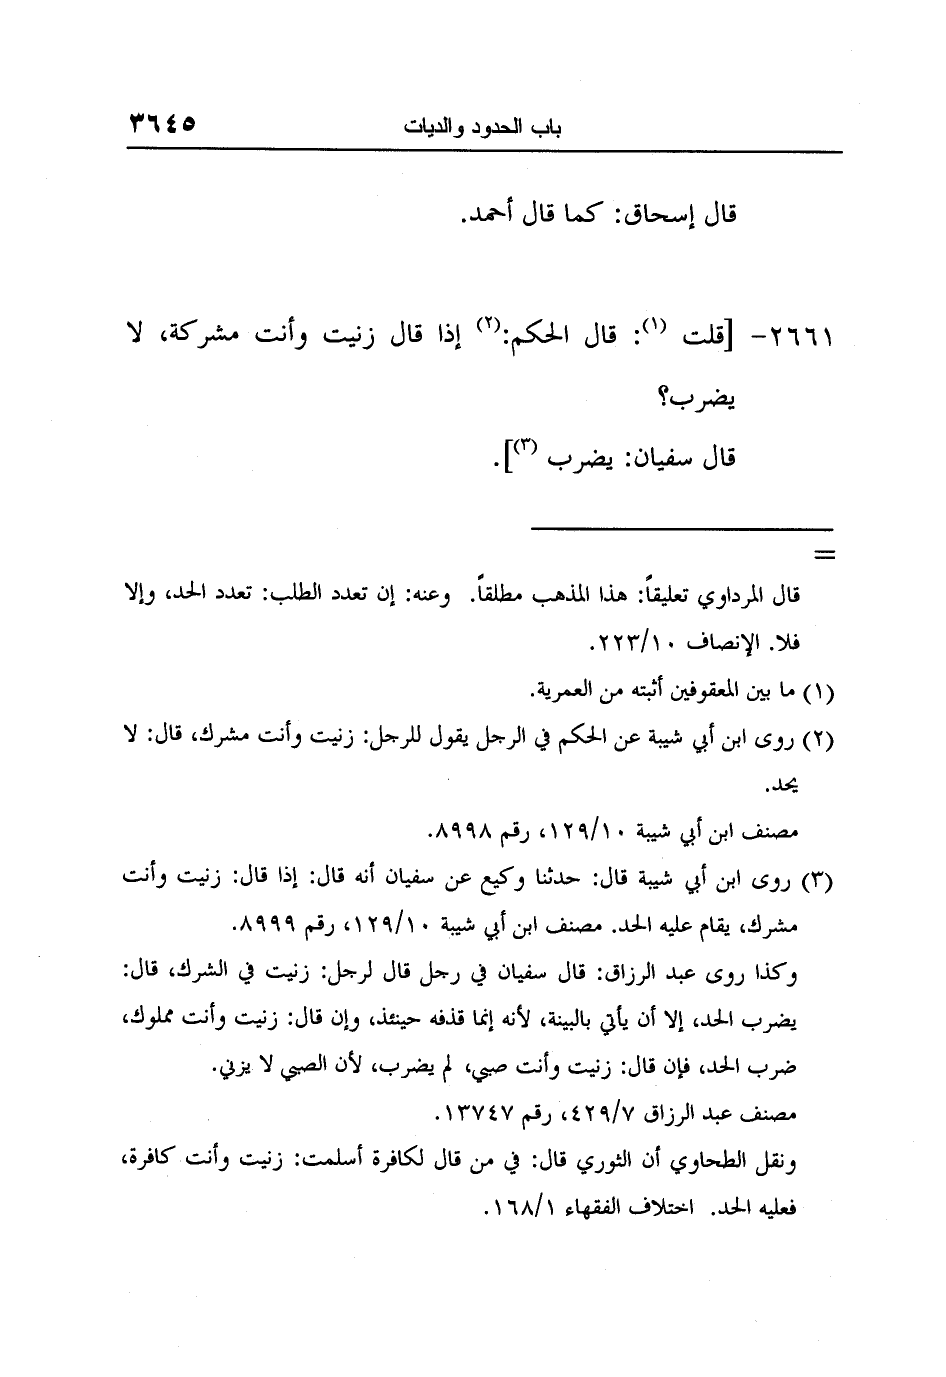 باب الحدود والديات ٣٦٤٥
قال إسحاق: كما قال أحمد.
٢٦٦١- [قلت (١): قال الحكم:(٢) إذا قال زنيت وأنت مشركة، لا
يضرب؟
قال سفيان: يضرب (٣)].
=
قال المرداوي تعليقاً: هذا المذهب مطلقاً. وعنه: إن تعدد الطلب: تعدد الحد، وإلا
فلا. الإنصاف ٢٢٣/١٠.
(١) ما بين المعقوفين أثبته من العمرية.
(٢) روى ابن أبي شيبة عن الحكم في الرجل يقول للرجل: زنيت وأنت مشرك، قال: لا
يحد.
مصنف ابن أبي شيبة ١٢٩/١٠، رقم ٨٩٩٨.
(٣) روى ابن أبي شيبة قال: حدثنا وكيع عن سفيان أنه قال: إذا قال: زنيت وأنت
مشرك، يقام عليه الحد. مصنف ابن أبي شيبة ١٢٩/١٠، رقم ٨٩٩٩.
وكذا روى عبد الرزاق: قال سفيان في رجل قال لرجل: زنيت في الشرك، قال:
يضرب الحد، إلا أن يأتي بالبينة، لأنه إنما قذفه حينئذ، وإن قال: زنيت وأنت مملوك،
ضرب الحد، فإن قال: زنيت وأنت صبي، لم يضرب، لأن الصبي لا يزني.
مصنف عبد الرزاق ٤٢٩/٧، رقم ١٣٧٤٧.
ونقل الطحاوي أن الثوري قال: في من قال لكافرة أسلمت: زنيت وأنت كافرة،
فعليه الحد. اختلاف الفقهاء ١٦٨/١.